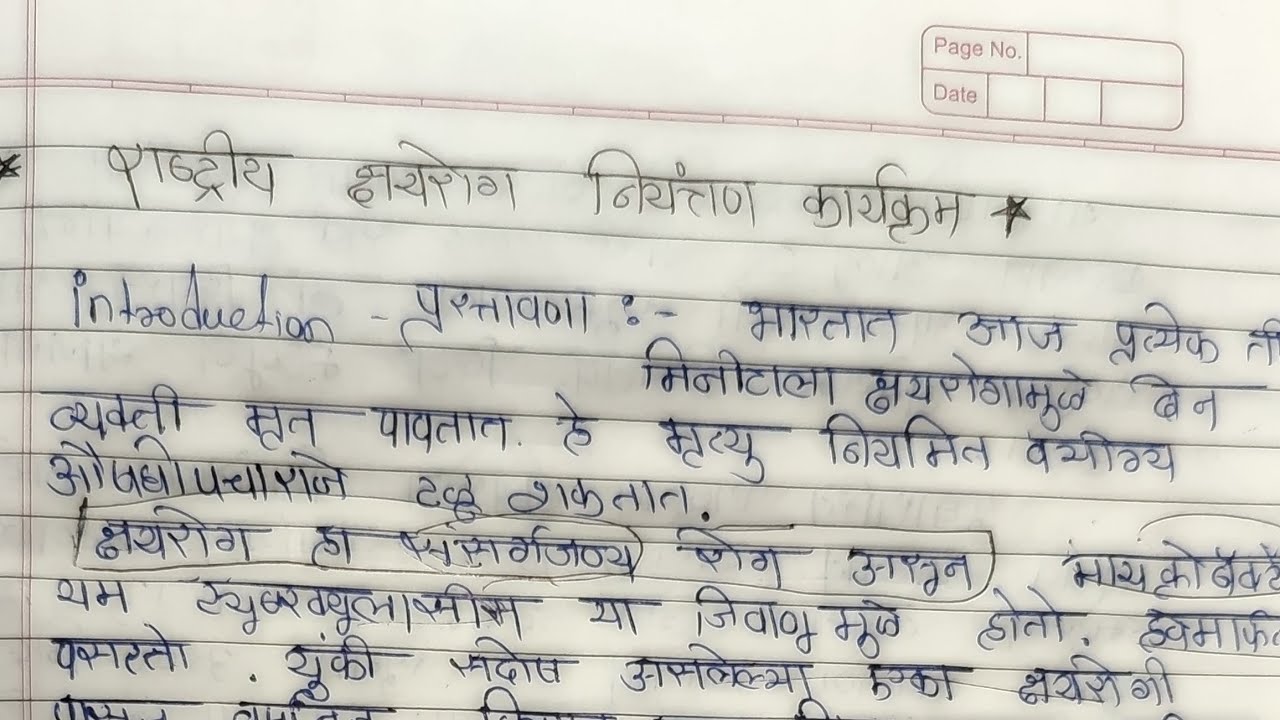 Page No.
Date
* राष्ट्रीय क्षयरोग नियंत्रण कार्यक्रम *
introduction - प्रस्तावणा :- भारतात आज प्रत्येक ती
मिनीटाला क्षयरोगामुळे
व्यक्ती मृत पावतात. हे मृत्यु नियमित व योग्य
औषधोपचाराने टळू शकतात.
क्षयरोग हा संसर्गजन्य रोग असून मायकोबॅक्टे
यम ट्युबरक्युलासीस या जिवाणूमुळे होतो. हवेमार्फत
पसरतो. थुंकी सदोष असलेल्या एका क्षयरोगी